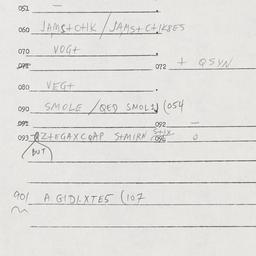 051 —
060 JAMS+CHK / JAMS+C+IK8ES
070 VOG+
071 072 + QSYN
080 VEG+
090 SMOLE / QED SMOL1) (054
091 092 —
093 QZ+EGAXCQAP S+MIRN S+IX 096 0
BUT
901 A GIDI.XTE5 (107